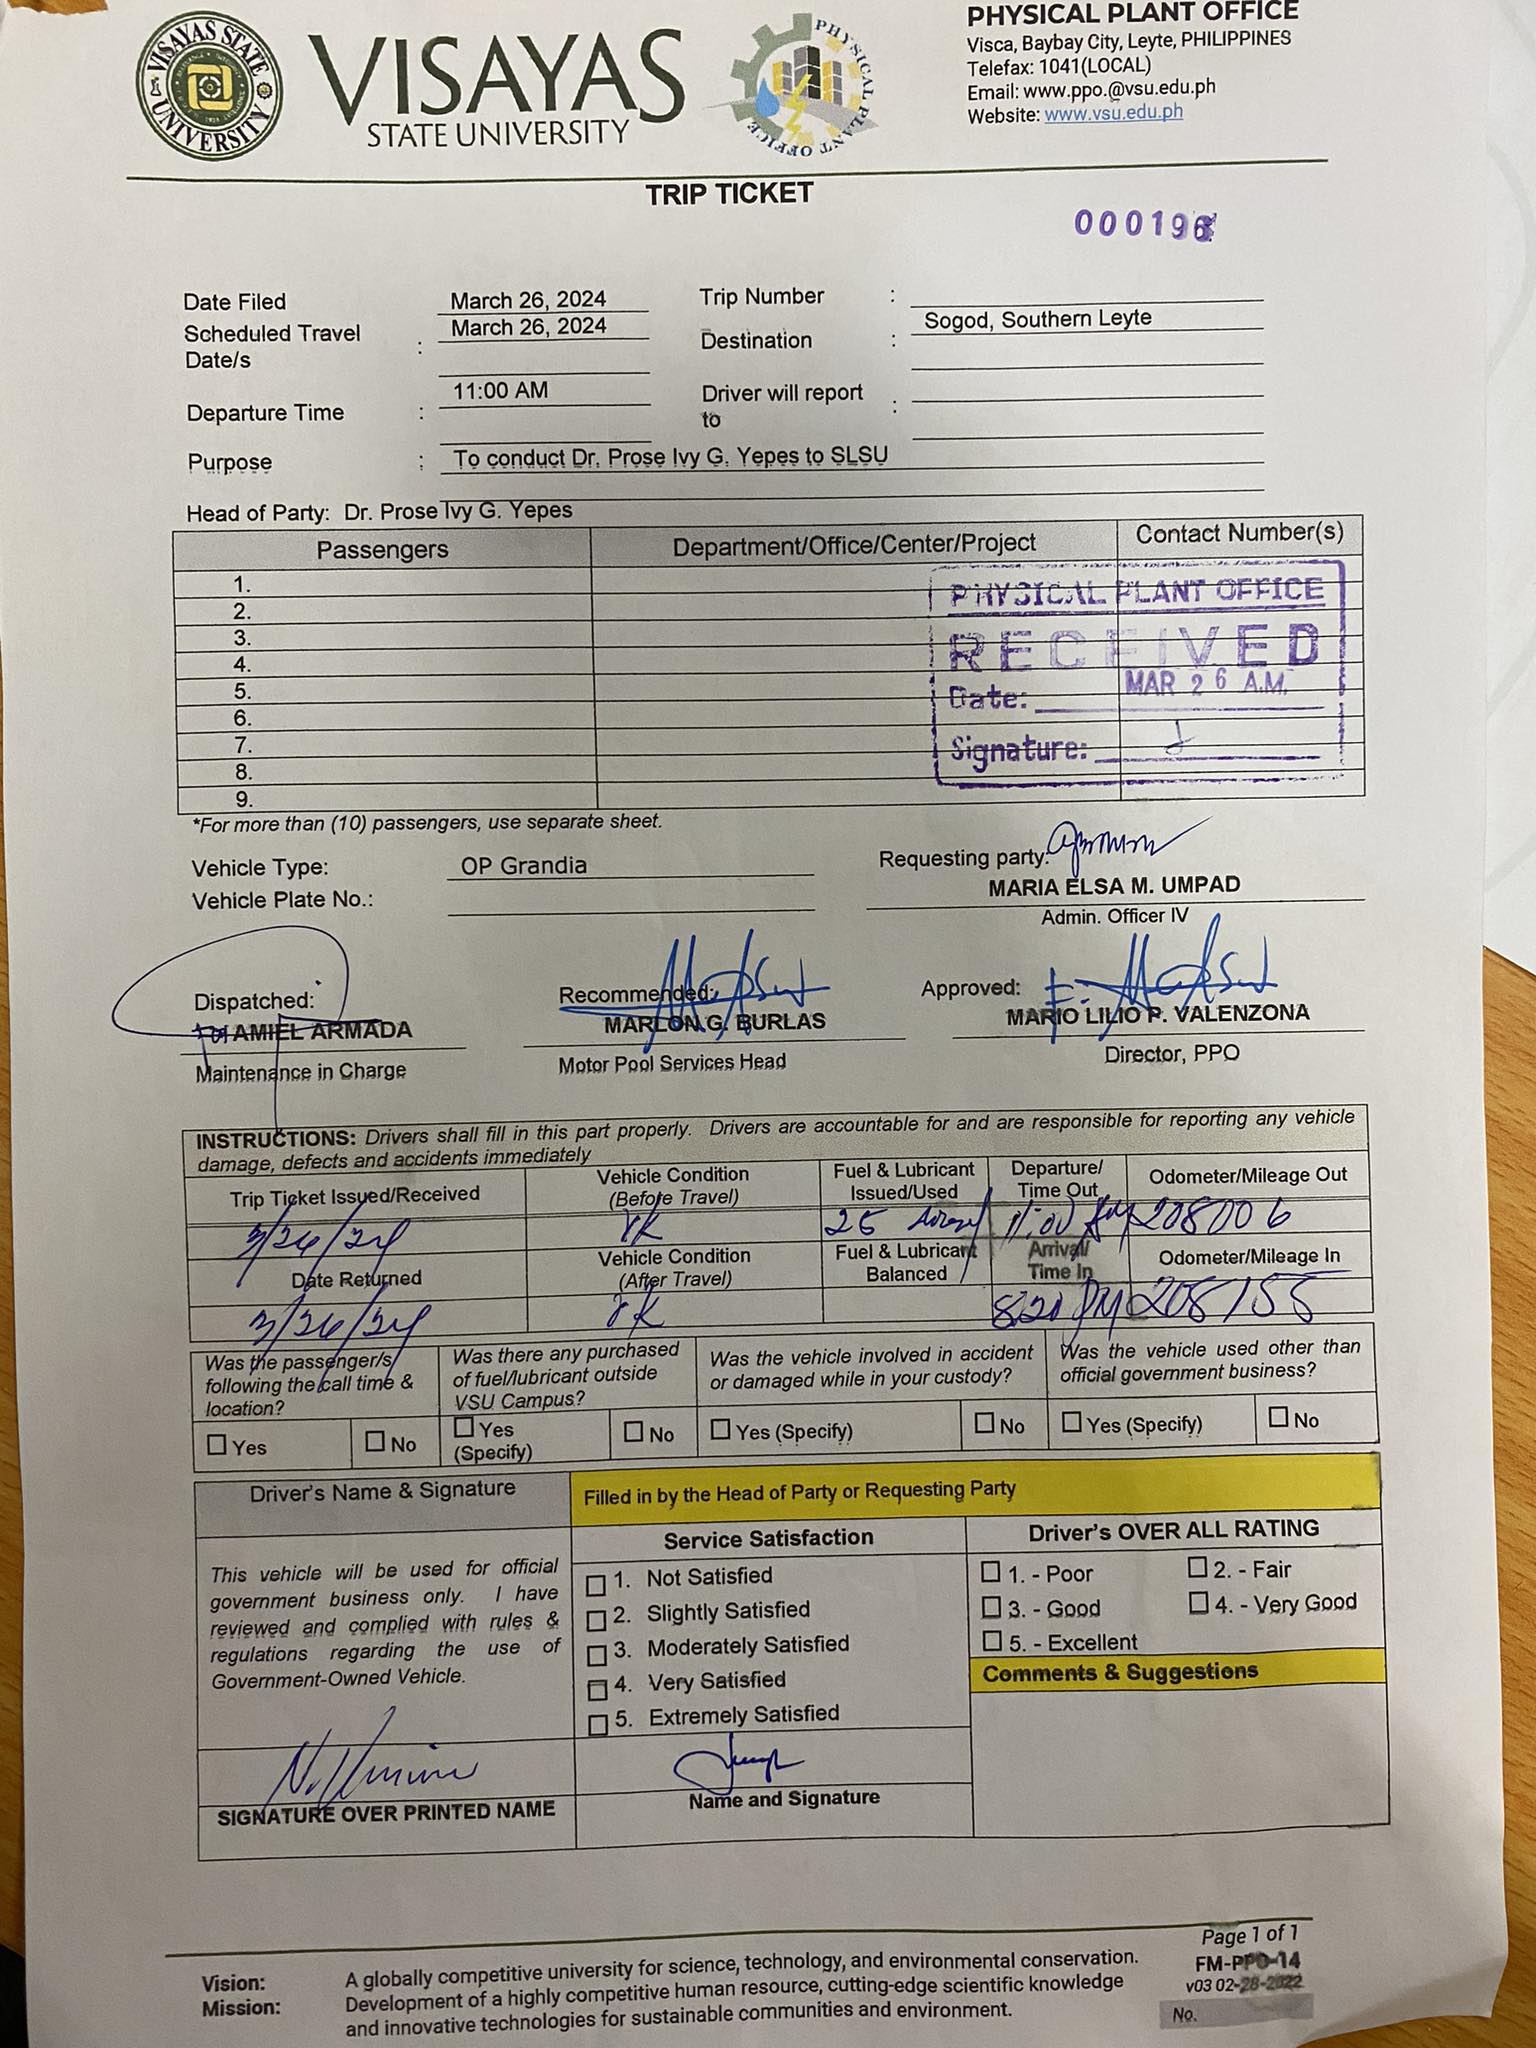 VISAYAS STATE UNIVERSITY
VISAYAS
STATE UNIVERSITY
PHYSICAL PLANT OFFICE
PHYSICAL PLANT OFFICE
Visca, Baybay City, Leyte, PHILIPPINES
Telefax: 1041(LOCAL)
Email: www.ppo.@vsu.edu.ph
Website: www.vsu.edu.ph
TRIP TICKET
Date Filed March 26, 2024 Trip Number :
Scheduled Travel Date/s : March 26, 2024 Destination : Sogod, Southern Leyte
Departure Time : 11:00 AM Driver will report to :
Purpose : To conduct Dr. Prose Ivy G. Yepes to SLSU
Head of Party: Dr. Prose Ivy G. Yepes
Passengers Department/Office/Center/Project Contact Number(s)
1.
2.
3.
4.
5.
6.
7.
8.
9.
PHYSICAL PLANT OFFICE
RECEIVED
Date: MAR 26 A.M.
Signature:
*For more than (10) passengers, use separate sheet.
Vehicle Type: OP Grandia Requesting party:
MARIA ELSA M. UMPAD
Vehicle Plate No.:
Admin. Officer IV
Dispatched: Recommended: Approved:
AMIEL ARMADA MARLON G. BURLAS MARIO LILIO P. VALENZONA
Maintenance in Charge Motor Pool Services Head Director, PPO
INSTRUCTIONS: Drivers shall fill in this part properly. Drivers are accountable for and are responsible for reporting any vehicle
damage, defects and accidents immediately
Trip Ticket Issued/Received Vehicle Condition (Before Travel) Fuel & Lubricant Issued/Used Departure/ Time Out Odometer/Mileage Out
3/26/24 25 11:00 AM 208006
Date Returned Vehicle Condition (After Travel) Fuel & Lubricant Balanced Arrival/ Time In Odometer/Mileage In
3/26/24 820 PM 208155
Was the passenger/s following the call time & location? Was there any purchased of fuel/lubricant outside VSU Campus? Was the vehicle involved in accident or damaged while in your custody? Was the vehicle used other than official government business?
Yes No Yes (Specify) No Yes (Specify) No Yes (Specify) No
Driver's Name & Signature Filled in by the Head of Party or Requesting Party
Service Satisfaction Driver's OVER ALL RATING
This vehicle will be used for official
government business only. I have
reviewed and complied with rules &
regulations regarding the use of
Government-Owned Vehicle.
1. Not Satisfied
2. Slightly Satisfied
3. Moderately Satisfied
4. Very Satisfied
5. Extremely Satisfied
1. - Poor 2. - Fair
3. - Good 4. - Very Good
5. - Excellent
Comments & Suggestions
SIGNATURE OVER PRINTED NAME Name and Signature
Page 1 of 1
FM-PPO-14
v03 02-28-2022
No.
Vision: A globally competitive university for science, technology, and environmental conservation.
Mission: Development of a highly competitive human resource, cutting-edge scientific knowledge
and innovative technologies for sustainable communities and environment.